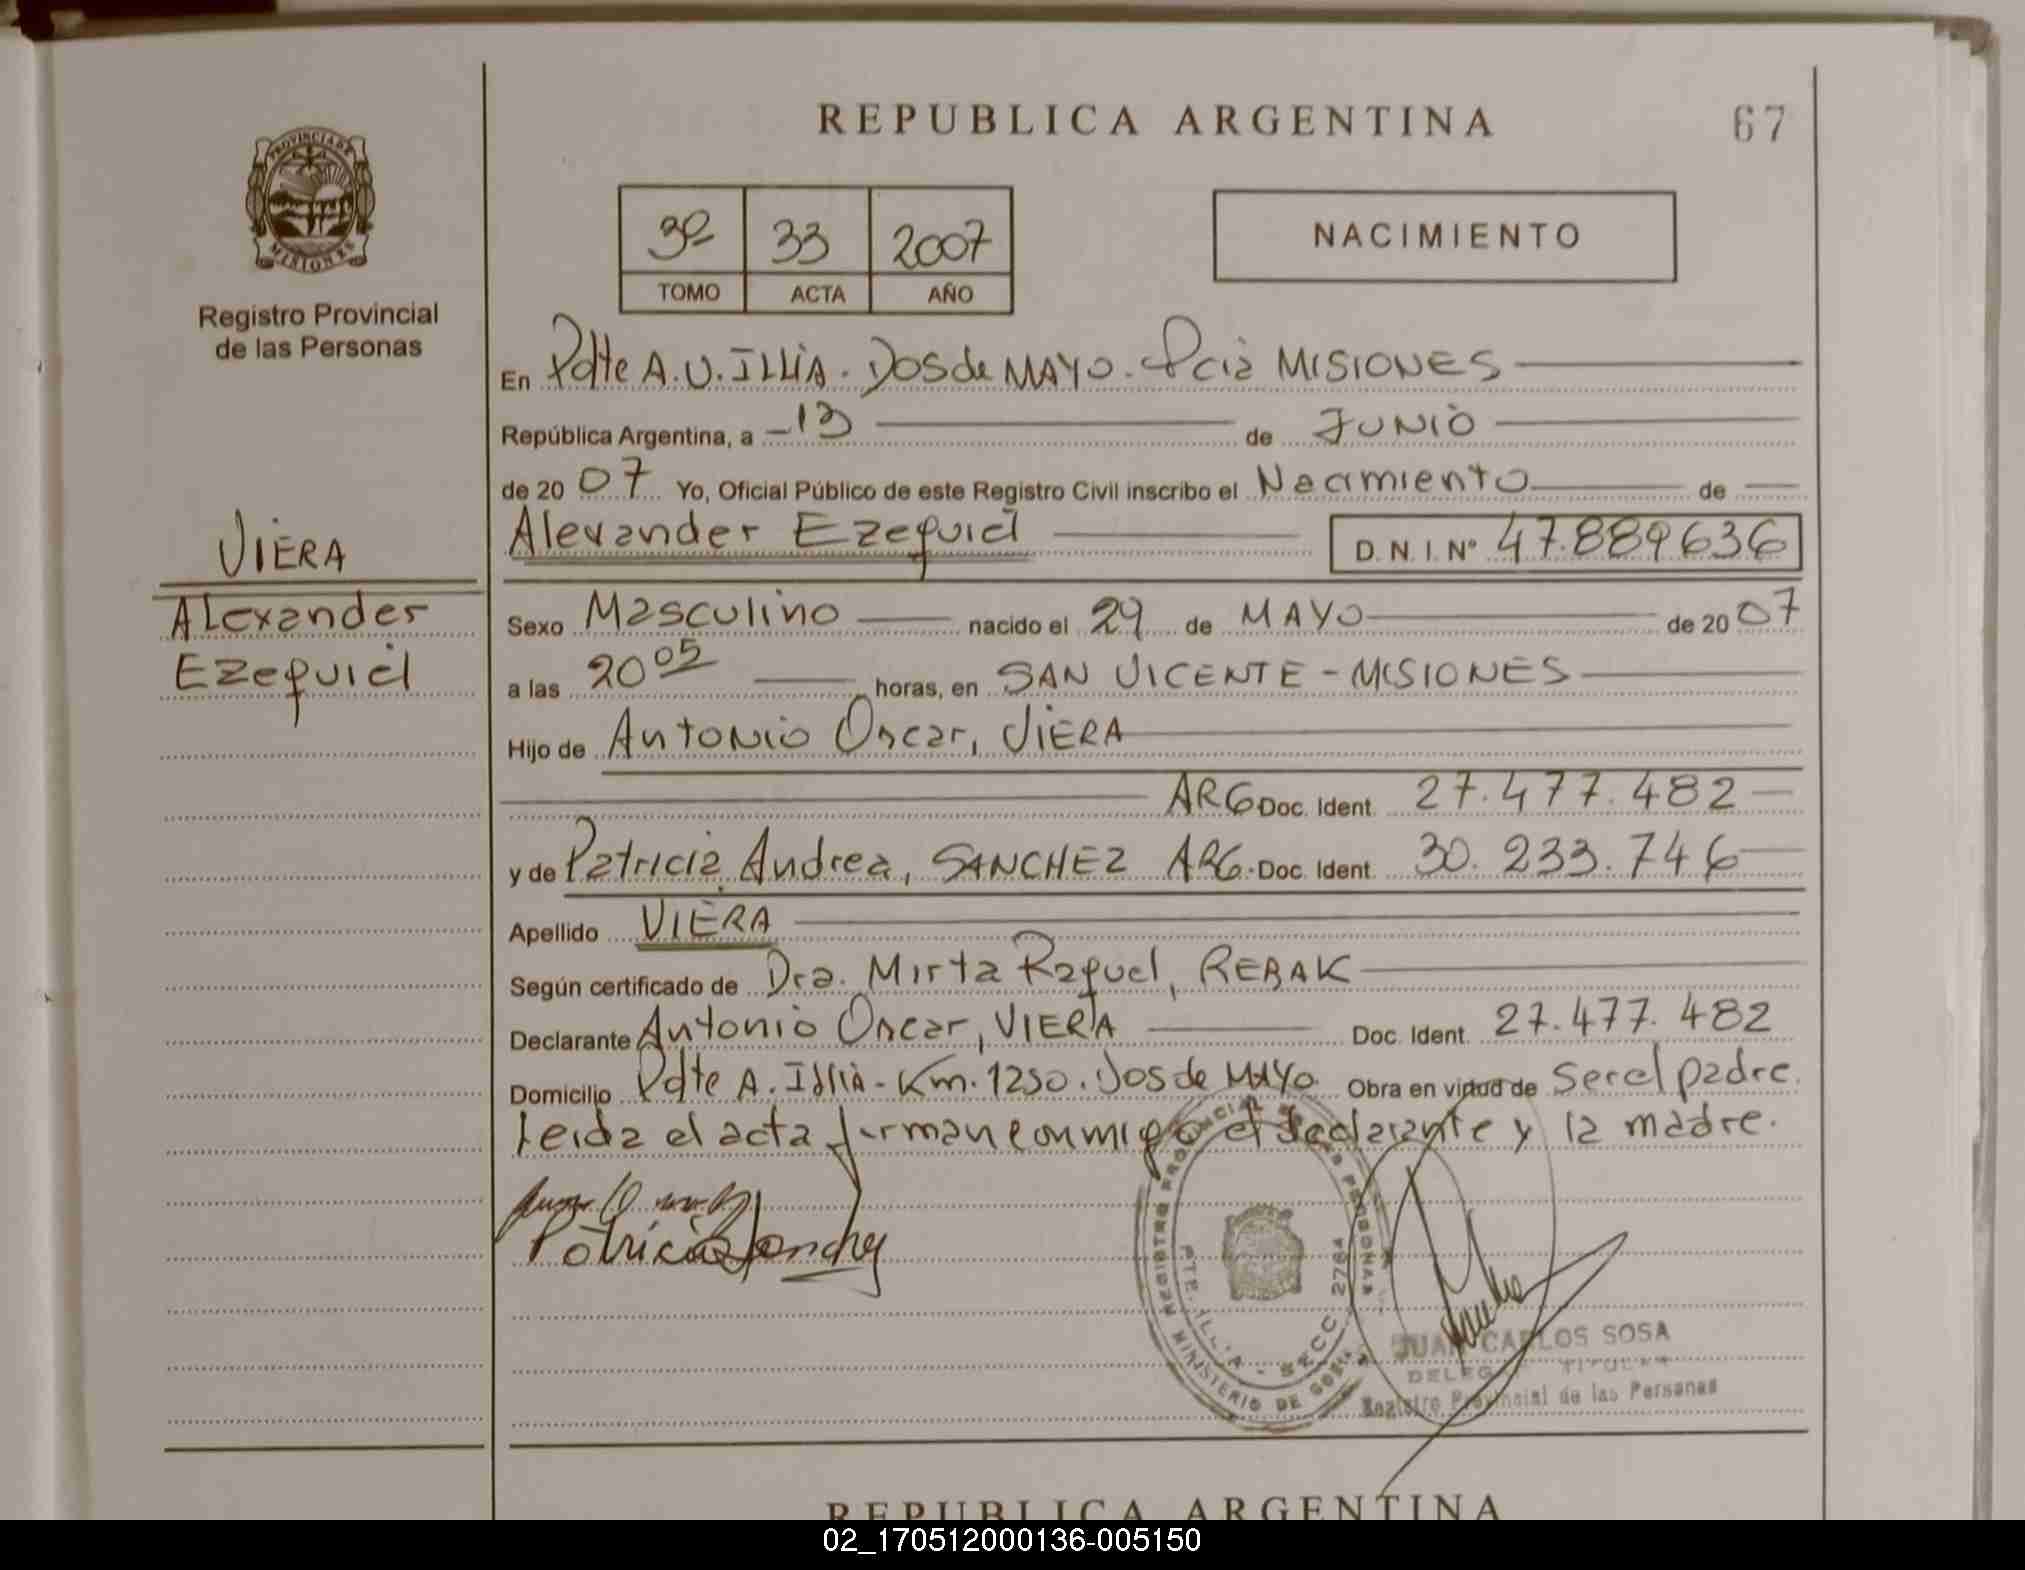 REPUBLICA ARGENTINA
67
PROVINCIA DE
MISIONES
Registro Provincial
de las Personas
3º 33 2007
TOMO ACTA AÑO
NACIMIENTO
En Pdte A.U. ILLIA. DOS de MAYO. Pcia MISIONES
República Argentina, a 13 de JUNIO
de 2007 Yo, Oficial Público de este Registro Civil inscribo el Nacimiento de
Alexander Ezequiel D. N. I. Nº 47.889636
VIERA
Alexander
Ezequiel
Sexo Masculino nacido el 29 de MAYO de 2007
a las 20 05 horas, en SAN VICENTE - MISIONES
Hijo de Antonio Oscar, VIERA
ARG Doc. Ident. 27.477.482
y de Patricia Andrea, SANCHEZ ARG. Doc. Ident. 30.233.746
Apellido VIERA
Según certificado de Dra. Mirta Raquel, REBAK
Declarante Antonio Oscar, VIERA Doc. Ident. 27.477.482
Domicilio Pdte A. Illia - Km. 1250. Dos de MAYO. Obra en virtud de Ser el padre.
Leida el acta firman conmigo el declarante y la madre.
Patricia Sanchez
REGISTRO PROVINCIAL DE LAS PERSONAS
MINISTERIO DE GOB
PTE. ILLIA - SECC. 2764
JUAN CARLOS SOSA
DELEG TITULAR
Registro Provincial de las Personas
REPUBLICA ARGENTINA
02_170512000136-005150